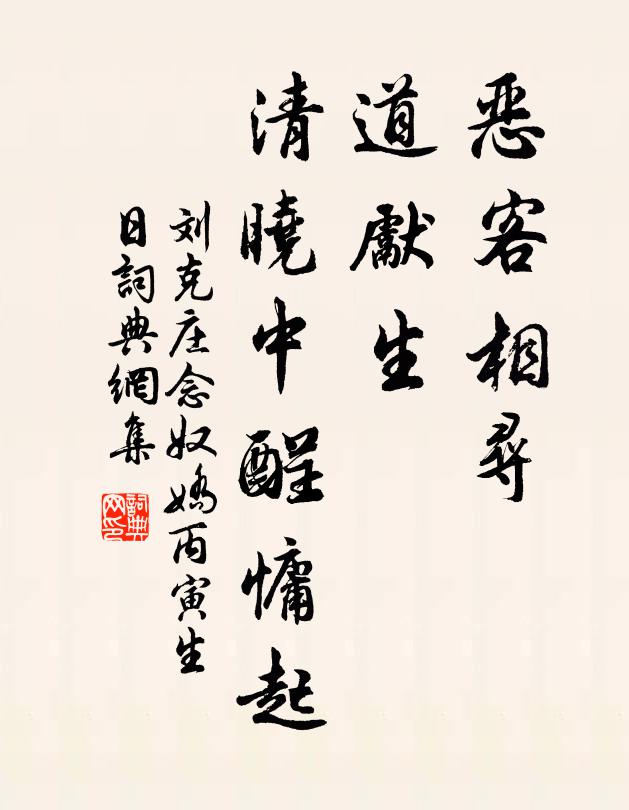 恶客相尋
道獻生
清曉中酲慵起
刘克庄念奴嬌丙寅生
日詞典網集
詞典
网印